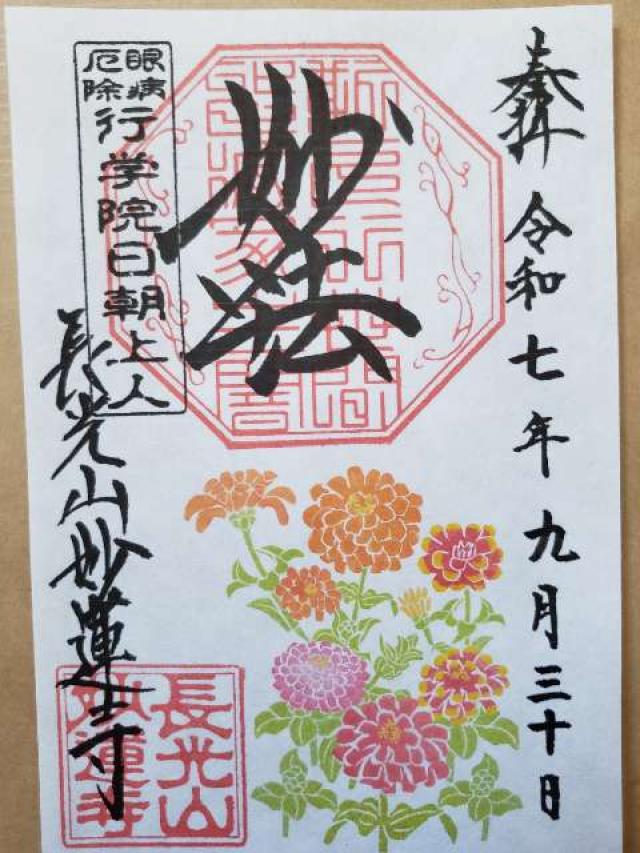 奉拝
令和七年九月三十日
妙法
眼病
厄除
行学院日朝上人
長光山妙蓮寺
長光山
妙蓮寺